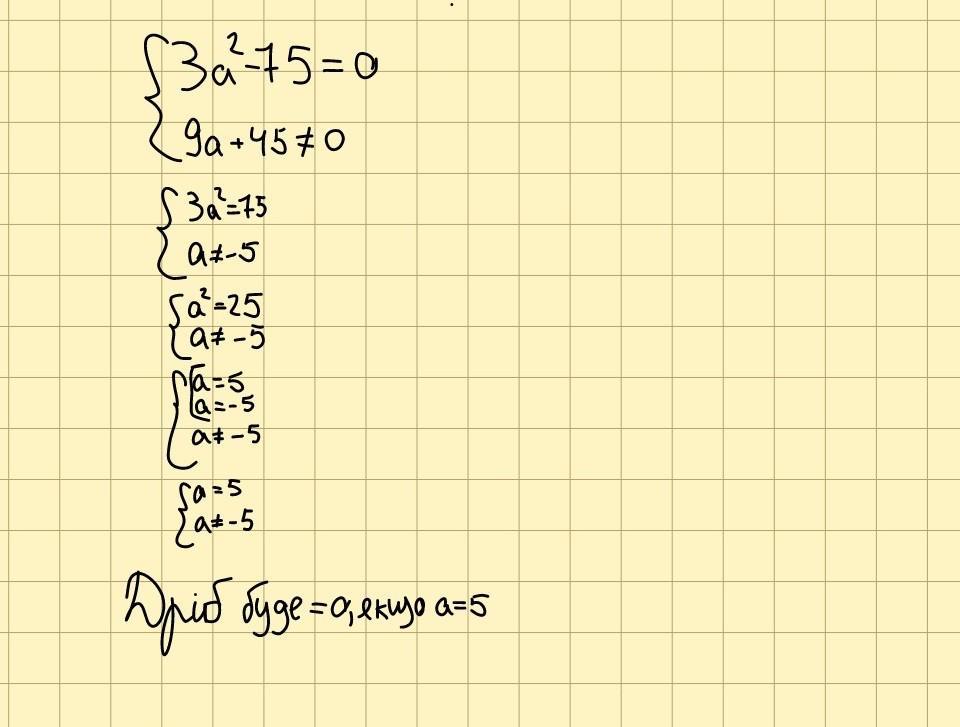 {3a²-75=0
9a+45≠0
{3a²=75
a≠-5
{a²=25
a≠-5
{[a=5
a=-5
a≠-5
{a=5
a≠-5
Дріб буде=0, якщо a=5